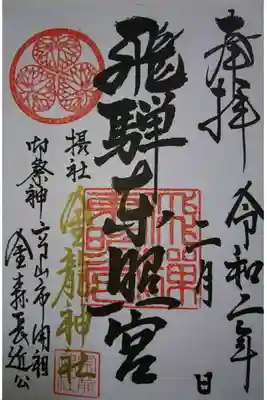 奉拝
令和二年
二月　日
飛騨東照宮
摂社
金龍神社
御祭神 高山市開祖
金森長近公